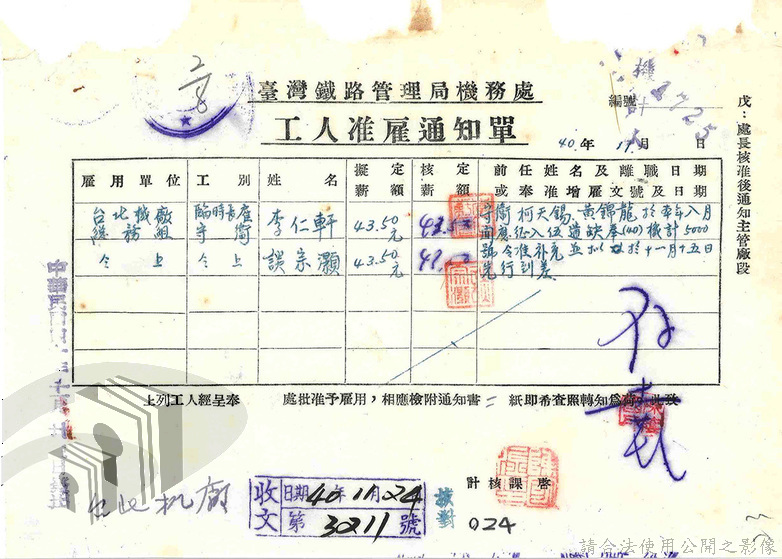 臺灣鐵路管理局機務處
工人准雇通知單
編號
機計人
4725
40年11月 日
戊：處長核准後通知主管廠段
雇用單位 工別 姓名 擬定薪額 核定薪額 前任姓名及離職日期或奉准增雇文號及日期
台北機廠總務組 臨時長雇守衛 李仁軒 43.50元 守衛柯天錫、黃錦龍於本年八月
應征入伍遺缺奉(40)機計5000
仝上 仝上 宗灝 43.50元 號令准補充 於十一月十五日
先行到差
上列工人經呈奉 處批准予雇用，相應檢附通知書二紙即希查照轉知為荷 此致
台北机廠
收文
日期40年11月24
第3211號
核對
計核課啓
024
請合法使用公開之影像